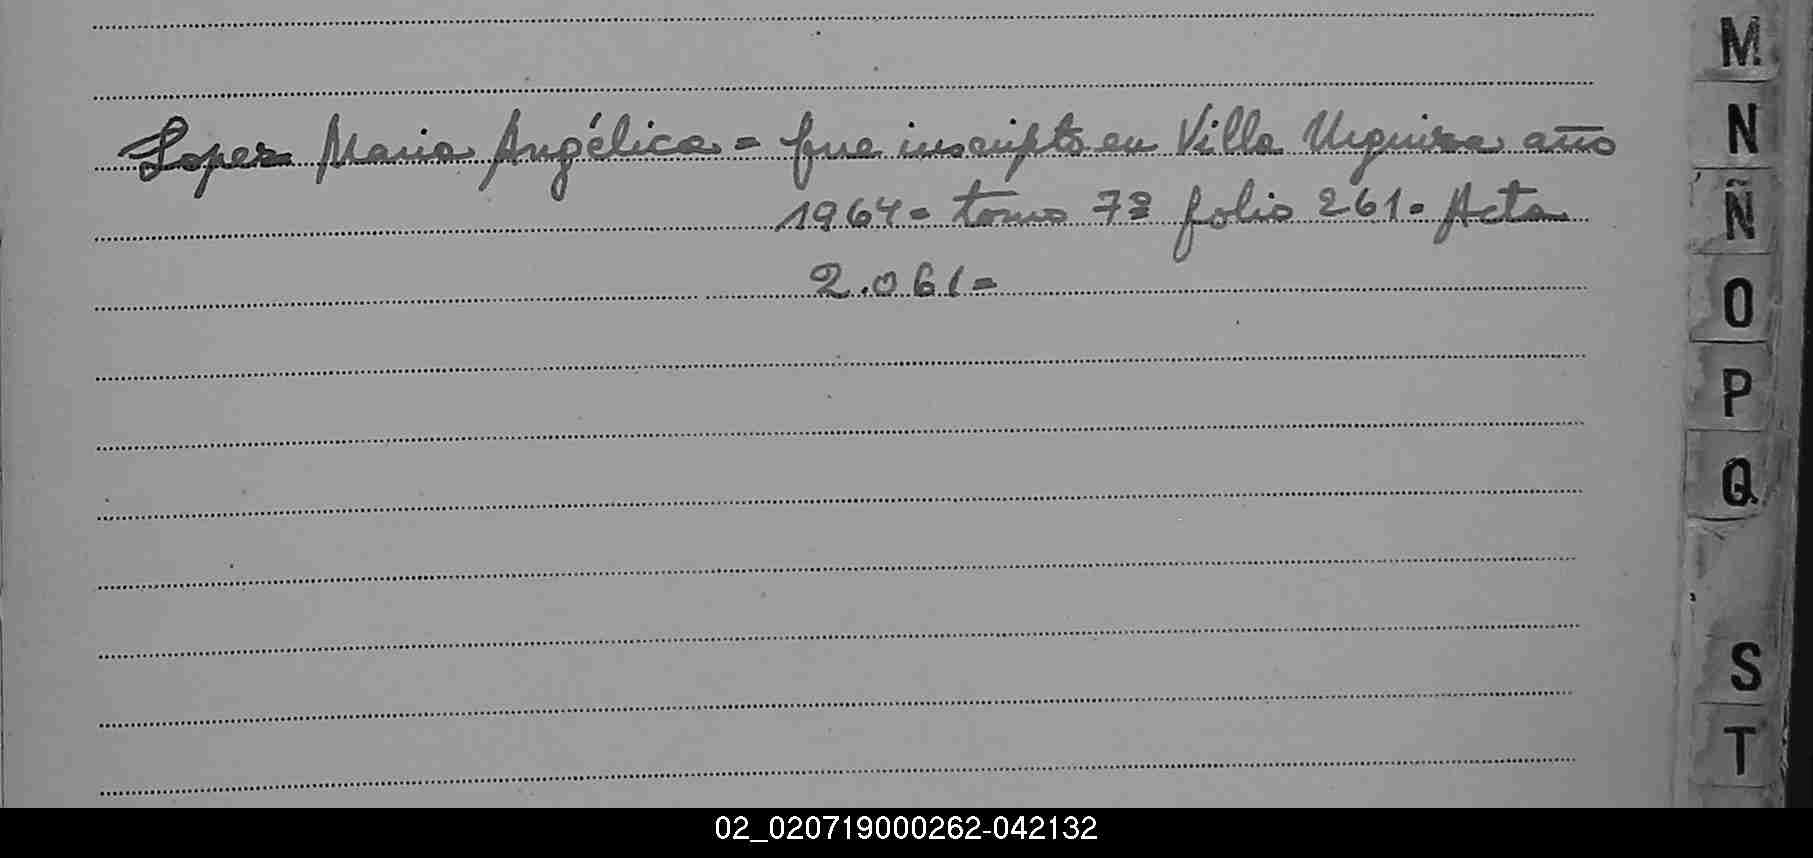 Lopez Maria Angélica = fue inscripto en Villa Urquiza año
1964 = tomo 7º folio 261 = Acta
2.061 =
M
N
Ñ
O
P
Q
S
T
02_020719000262-042132